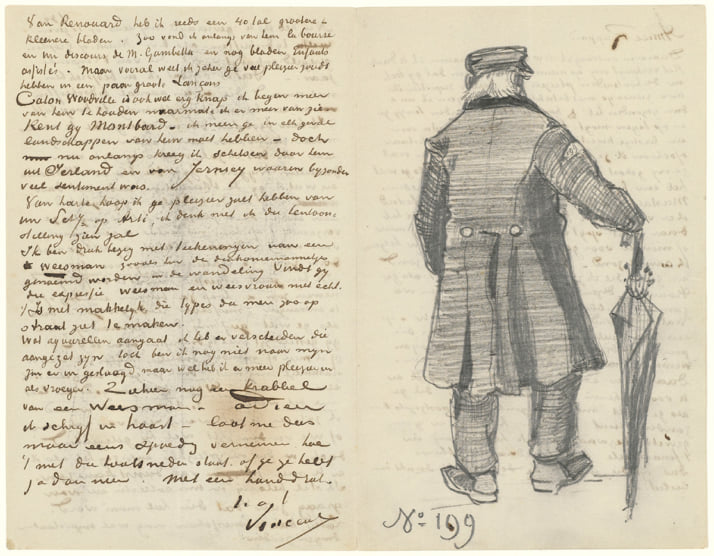 Van Renouard heb ik reeds een 40 tal grootere &
kleinere bladen. Zoo vond ik onlangs van hem la bourse
en un discours de M. Gambetta en nog bladen Enfants
assistés. Maar vooral weet ik zeker ge veel pleizier zoudt
hebben in een paar groote Lançons
Caton Woodville is ook wel erg knap ik begin meer
van hem te houden naarmate ik er meer van zie
Kent gy Montbard. ik meen ge in elk geval
landschappen van hem moet hebben — doch
nu onlangs kreeg ik schetsen door hem
uit Ierland en van Jersey waarin byzonder
veel sentiment was.
Van harte hoop ik ge pleizier zult hebben van
uw op Arti, ik denk niet ik de tentoon-
stelling zien zal
Ik ben druk bezig met teekeningen van een
weesman zooals hier de diakoniemannetjes
genoemd worden in de wandeling Vindt gy
die expressie weesman en weesvrouw niet echt.
't Is niet makkelyk die types die men zoo op
straat ziet te maken.
Wat aquarellen aangaat ik heb er verscheiden die
aangezet zyn toch ben ik nog niet naar myn
zin er in geslaagd maar wel heb ik er meer pleizier in
als vroeger. Ziehier nog een krabbel
van een weesman. adieu
ik schryf in haast — laat me dus
maar eens spoedig vernemen hoe
't met die houtsneden staat. of ge ze hebt
ja dan neen met een handdruk.
t. à t.
Vincent
No 199